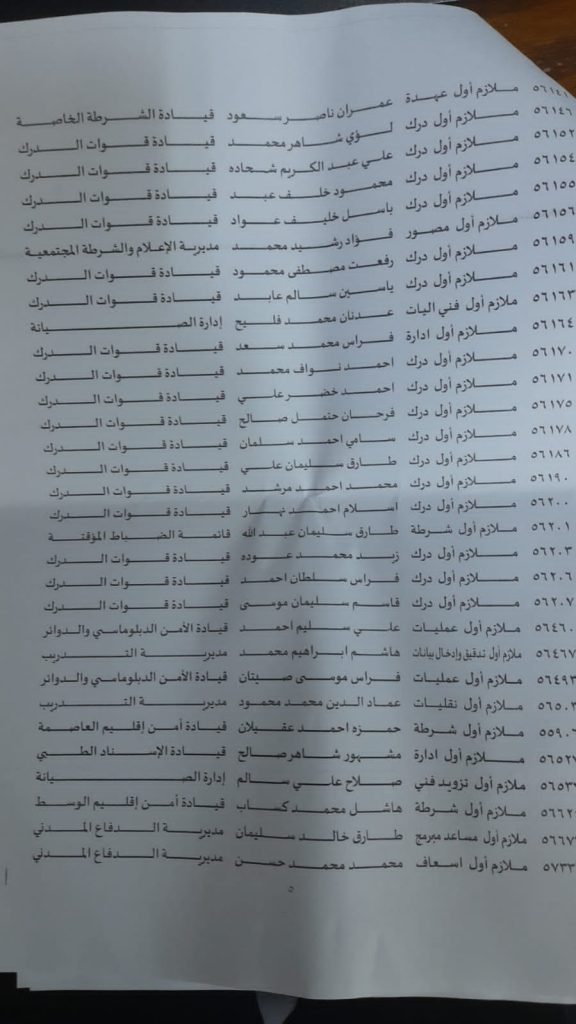 ٥٦١٤١ ملازم أول عهدة عمران ناصر سعود قيادة الشرطة الخاصة
٥٦١٤٦ ملازم أول درك لؤي شاهر محمد قيادة قوات الدرك
٥٦١٥٢ ملازم أول درك علي عبد الكريم شحاده قيادة قوات الدرك
٥٦١٥٤ ملازم أول درك محمود خلف عبد قيادة قوات الدرك
٥٦١٥٥ ملازم أول درك باسل خليف عواد قيادة قوات الدرك
٥٦١٥٦ ملازم أول مصور فؤاد رشيد محمد مديرية الإعلام والشرطة المجتمعية
٥٦١٥٩ ملازم أول درك رفعت مصطفى محمود قيادة قوات الدرك
٥٦١٦١ ملازم أول درك ياسين سالم عابد قيادة قوات الدرك
٥٦١٦٣ ملازم أول فني اليات عدنان محمد فليح إدارة الصيانة
٥٦١٦٤ ملازم أول ادارة فراس محمد سعد قيادة قوات الدرك
٥٦١٧٠ ملازم أول درك احمد نواف محمد قيادة قوات الدرك
٥٦١٧١ ملازم أول درك احمد خضر علي قيادة قوات الدرك
٥٦١٧٥ ملازم أول درك فرحان حتمل صالح قيادة قوات الدرك
٥٦١٧٨ ملازم أول درك سامي احمد سلمان قيادة قوات الدرك
٥٦١٨٦ ملازم أول درك طارق سليمان علي قيادة قوات الدرك
٥٦١٩٠ ملازم أول درك محمد احمد مرشد قيادة قوات الدرك
٥٦٢٠٠ ملازم أول درك اسلام احمد نهار قيادة قوات الدرك
٥٦٢٠١ ملازم أول شرطة طارق سليمان عبد الله قائمة الضباط المؤقتة
٥٦٢٠٣ ملازم أول درك زيد محمد عوده قيادة قوات الدرك
٥٦٢٠٦ ملازم أول درك فراس سلطان احمد قيادة قوات الدرك
٥٦٢٠٧ ملازم أول درك قاسم سليمان موسى قيادة قوات الدرك
٥٦٤٦٠ ملازم أول عمليات علي سليم احمد قيادة الأمن الدبلوماسي والدوائر
٥٦٤٦٧ ملازم أول تدقيق وإدخال بيانات هاشم ابراهيم محمد مديرية التدريب
٥٦٤٩٣ ملازم أول عمليات فراس موسى صيتان قيادة الأمن الدبلوماسي والدوائر
٥٦٥٠٣ ملازم أول نقليات عماد الدين محمد محمود مديرية التدريب
ملازم أول شرطة حمزه احمد عقيلان قيادة أمن إقليم العاصمة
ملازم أول ادارة مشهور شاهر صالح قيادة الإسناد الطبي
ملازم أول تزويد فني صلاح علي سالم إدارة الصيانة
ملازم أول شرطة هاشل محمد كساب قيادة أمن إقليم الوسط
ملازم أول مساعد مبرمج طارق خالد سليمان مديرية الدفاع المدني
ملازم أول اسعاف محمد محمد حسن مديرية الدفاع المدني
٥